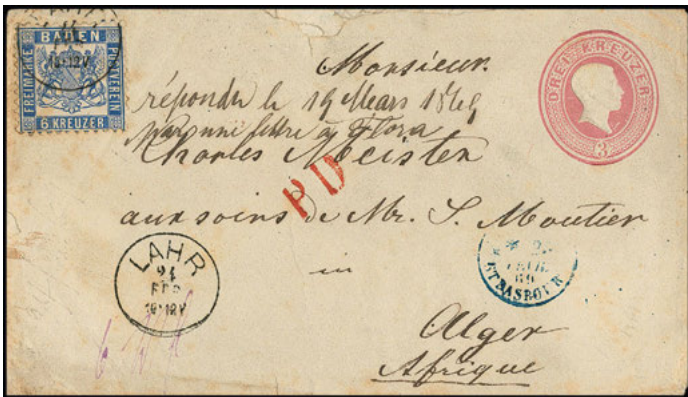 BADEN
FREIMARKE
POSTVEREIN
6 KREUZER
10-12V.
DREI KREUZER
3
Monsieur.
répondu le 19 Mars 1869
par une lettre à Flora
Charles Meister
P D
aux soins de Mr. S. Moutier
LAHR
24
FEB
10-12V
69
STRASBOURG
in
Alger
Afrique